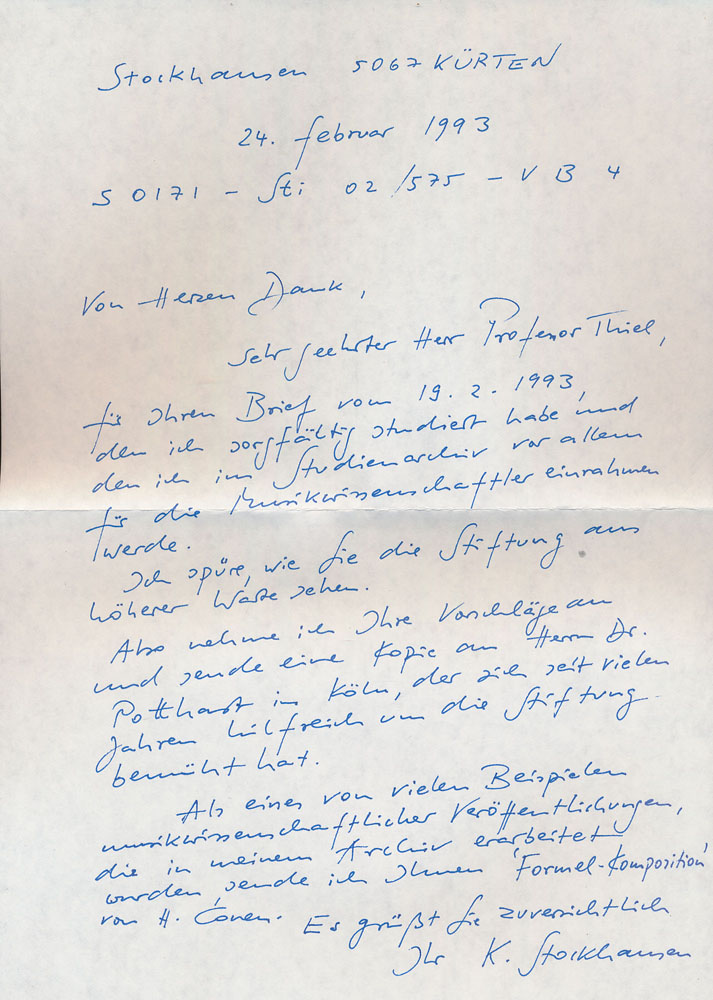 Stockhausen 5067 KÜRTEN
24. februar 1993
S 0171 - Sti 02/575 - V B 4
Von Herzen Dank,
Sehr geehrter Herr Professor Thiel,
für Ihren Brief vom 19. 2. 1993,
den ich sorgfältig studiert habe und
den ich im Studienarchiv vor allem
für die Musikwissenschaftler einrahmen
werde.
Ich spüre, wie Sie die Stiftung aus
höherer Warte sehen.
Also nehme ich Ihre Vorschläge an
und sende eine Kopie an Herrn Dr.
Potthast in Köln, der sich seit vielen
Jahren hilfreich um die Stiftung
bemüht hat.
Als eines von vielen Beispielen
musikwissenschaftlicher Veröffentlichungen,
die in meinem Archiv erarbeitet
wurden, sende ich Ihnen 'Formel-Komposition'
von H. Conen. Es grüßt Sie zuversichtlich
Ihr K. Stockhausen